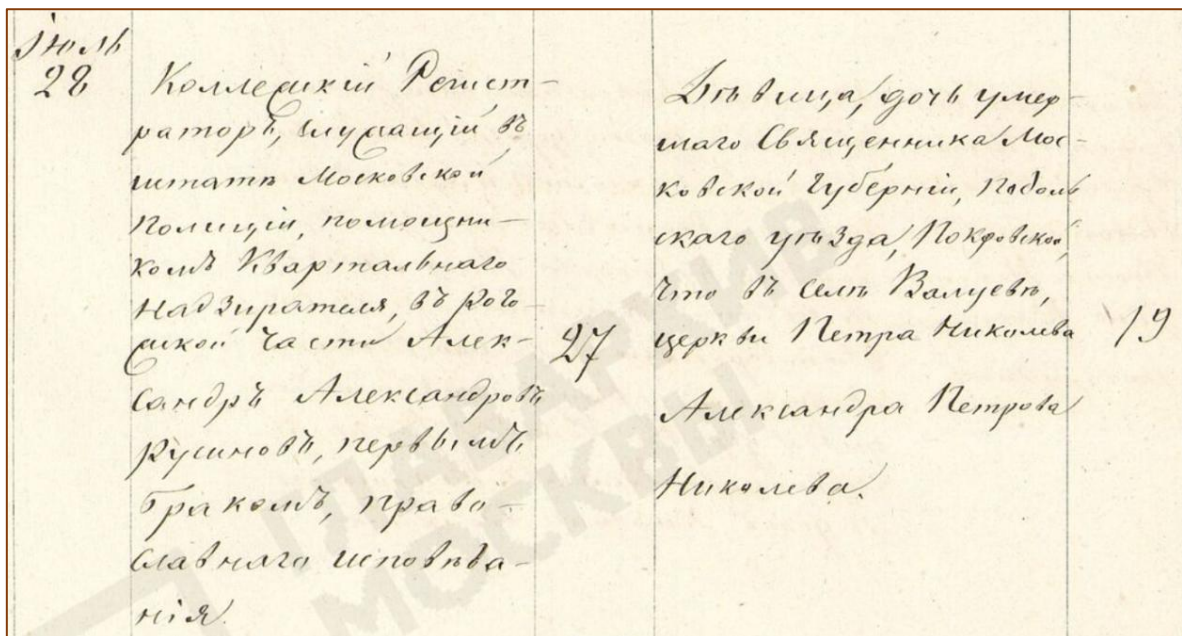 Іюль
28
Коллежскій Регист-
раторъ, служащій въ
штатѣ Московской
Полиціи, помощни-
комъ Квартальнаго
Надзирателя, въ Рого-
жской части Алек-
сандръ Александровъ
Русиновъ, первымъ
бракомъ, право-
славнаго исповѣда-
нія.
27
Дѣвица, дочь умер-
шаго Священника Мос-
ковской Губерніи, Подоль
скаго уѣзда, Покровской,
что въ селѣ Валуевѣ,
церкви Петра Николева
Александра Петрова
Николева.
19
ГЛАВАРХИВ
МОСКВЫ